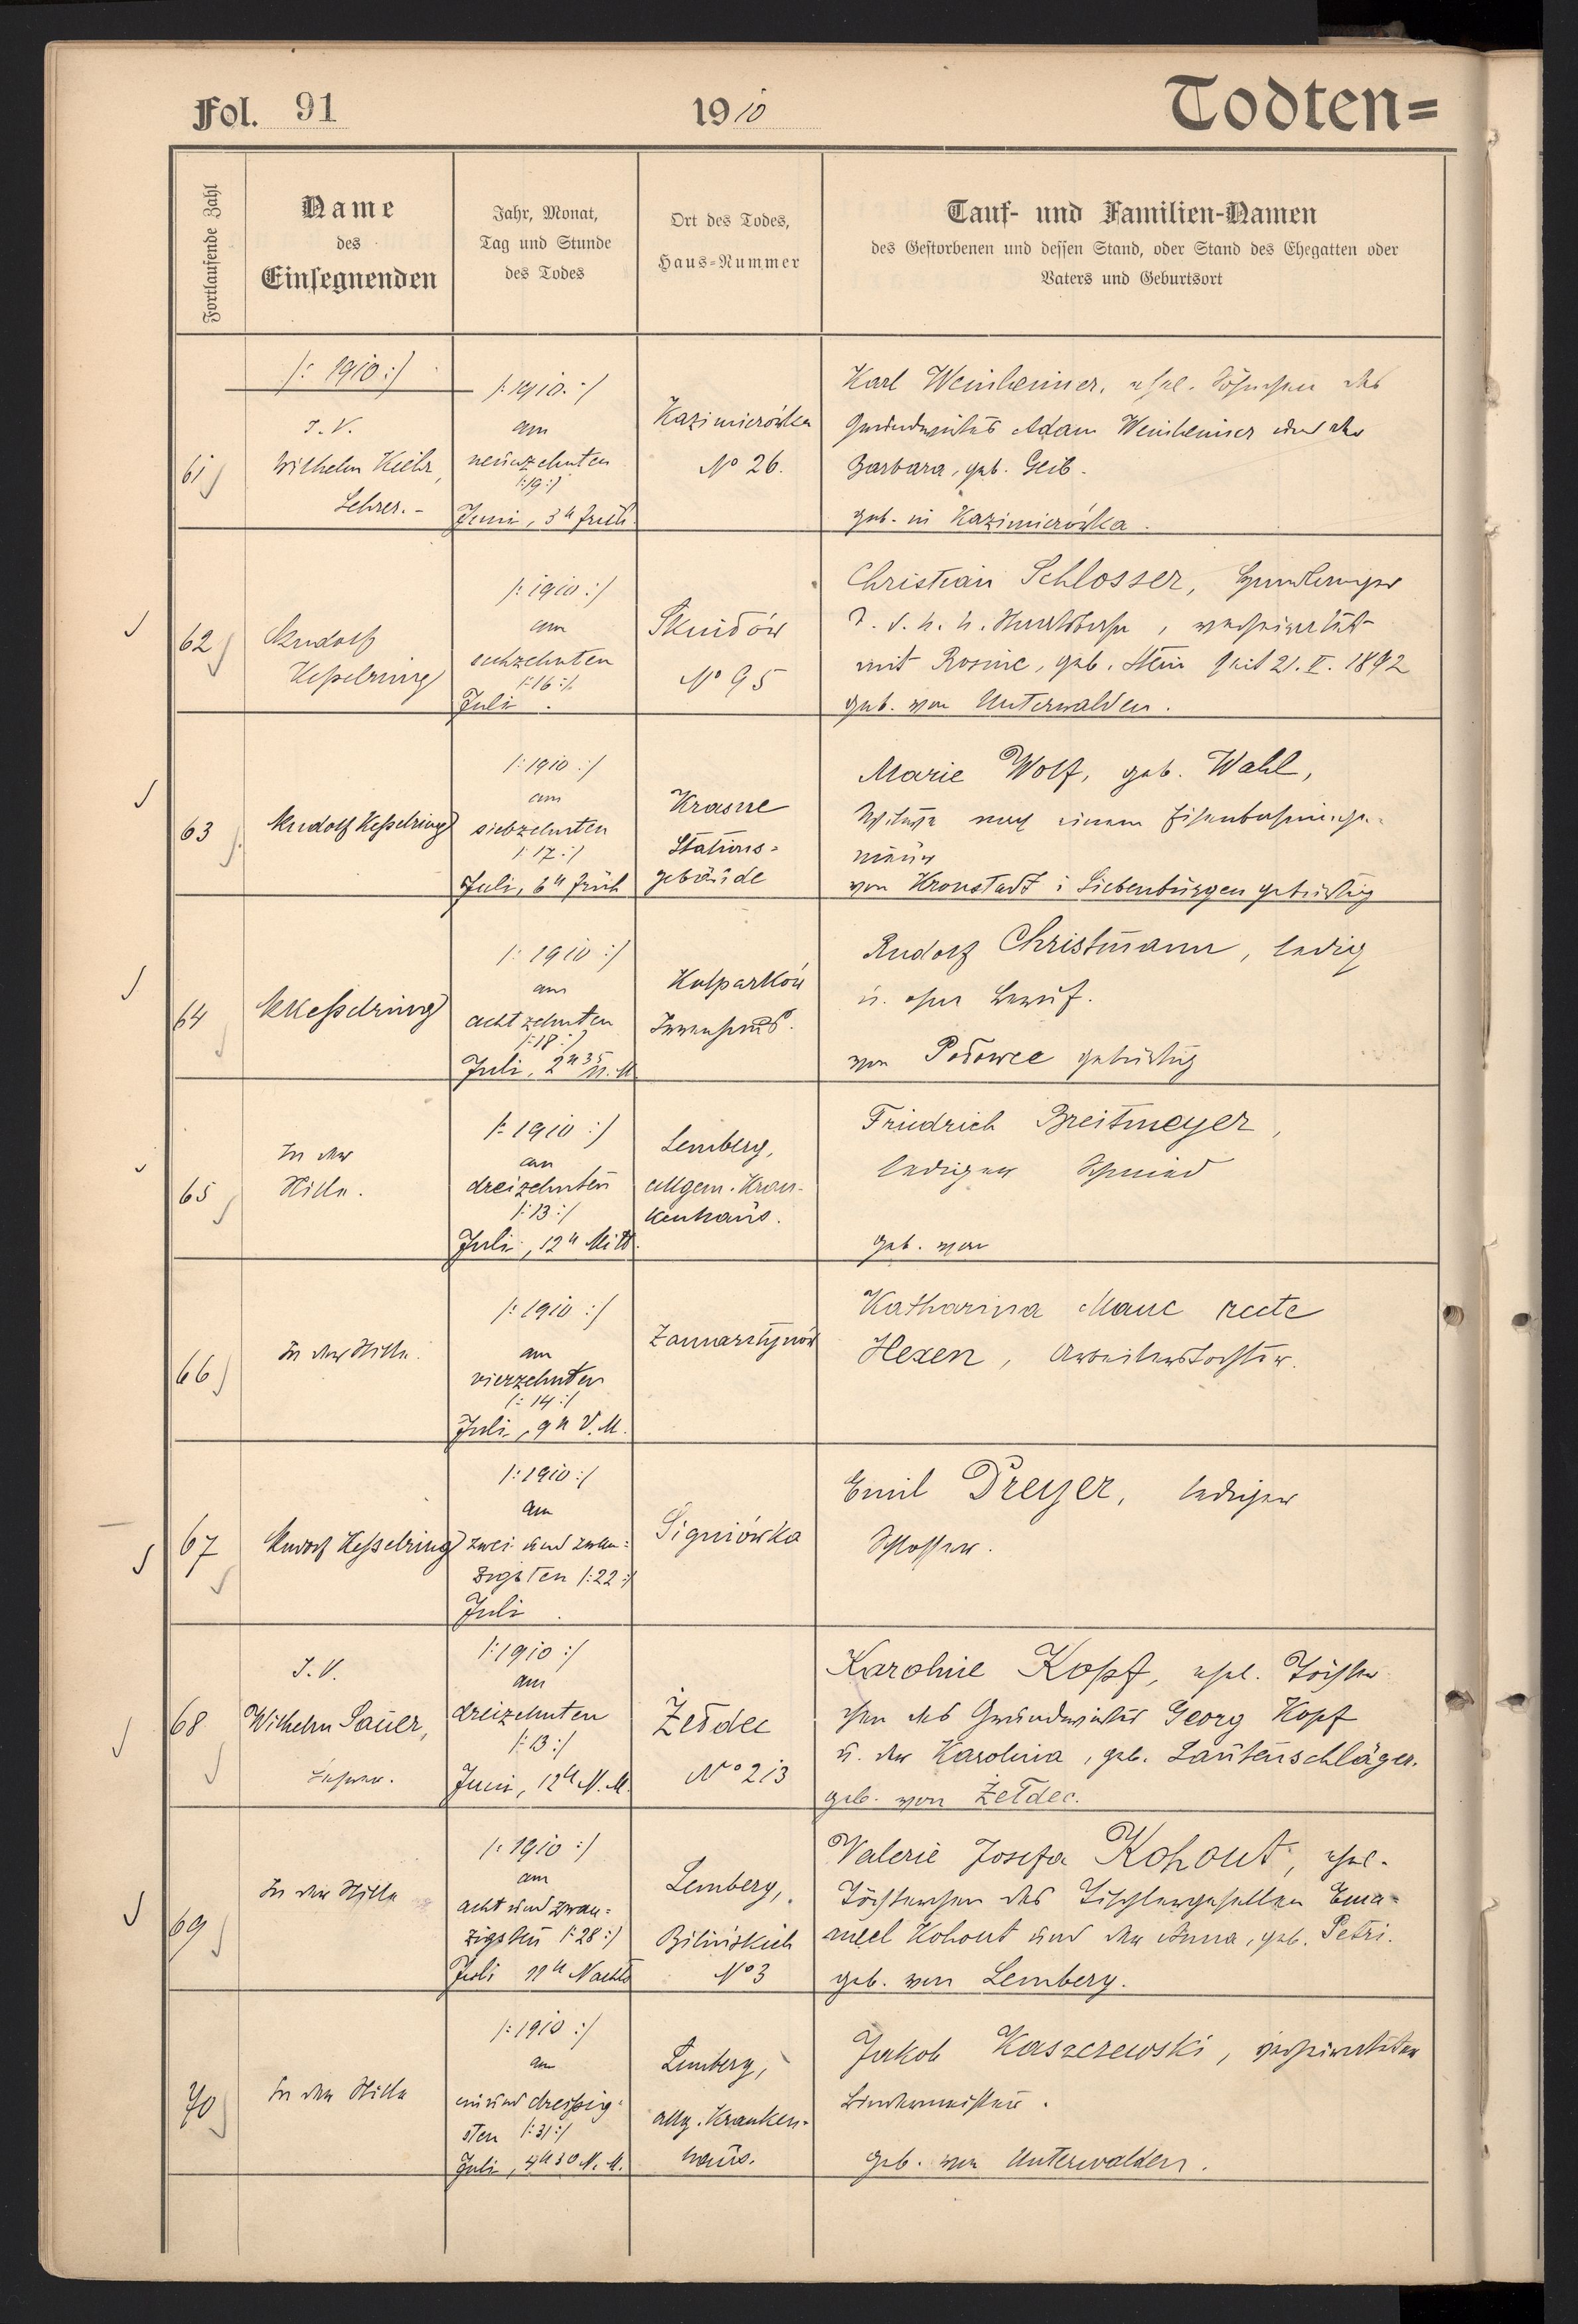 Fol. 91
1910
Todten=
Fortlaufende Zahl
Name
des
Einsegnenden
Jahr, Monat,
Tag und Stunde
des Todes
Ort des Todes,
Haus-Nummer
Tauf- und Familien-Namen
des Gestorbenen und dessen Stand, oder Stand des Ehegatten oder
Vaters und Geburtsort
/: 1910 :/
61
I. V.
Wilhelm Kiehr,
Lehrer.-
/: 1910. :/
am
neünzehnten
/:19:/
Juni, 3h früh.
Kazimierówka
No 26.
Karl Weinheimer, ehel. Söhnchen des
Grundwirtes Adam Weinheimer und der
Barbara, geb. Geib.
geb. in Kazimierówka.
62
Rudolf
Keßelring
/: 1910 :/
am
sechzehnten
/:16:/
Juli.
Skniłów
No 95
Christian Schlosser,
mit Rosine, geb. Stein seit 21. II. 1892
geb. von Unterwalden.
63
Rudolf Keßelring
/: 1910 :/
am
siebzehnten
/: 17 :/
Juli, 6h früh
Krasne
Stations=
gebäude
Marie Wolf, geb. Wahl,
Witwe nach einem
von Kronstadt i Siebenbürgen gebürtig
64
RKeßelring
/: 1910 :/
am
achtzehnten
/:18:/
Juli, 2h 35 N. M
Kulparków
Irrenhaus.
Rudolf Christmann, ledig
u. ohne Beruf.
von Podowce gebürtig
65
In der
Stille.
/: 1910 :/
am
dreizehnten
/: 13 :/
Juli, 12h Mitt.
Lemberg,
allgem. Kran-
kenhaus.
Friedrich Breitmeyer,
lediger Schmied
geb. von
66
In der Stille.
/: 1910 :/
am
vierzehnten
/: 14 :/
Juli, 9h V. M.
Zamarstynów
Katharina Manc recte
Hexen, Arbeiterstochter.
67
Rudolf Keßelring
/: 1910 :/
am
zwei und zwan=
zigsten /:22:/
Juli.
Signiówka
Emil Dreyer, lediger
Schlosser.
68
I. V.
Wilhelm Sauer,
Lehrer.
/: 1910 :/
am
dreizehnten
/: 13 :/
Juni, 12h N. M.
Żełdec
No 213
Karoline Kopf, ehel. Töchter-
chen des Grundwirtes Georg Kopf
u. der Karolina, geb. Lautenschläger.
geb. von Żełdec.
69
In der Stille
/: 1910 :/
am
acht und zwan=
zigsten /: 28 :/
Juli 11h Nachts
Lemberg,
Bilińskich
No 3
Valerie Josefa Kohout, ehel.
Töchterchen des Tischlergesellen Ema=
nuel Kohout und der Anna, geb. Petri.
geb. von Lemberg.
70
In der Stille
/: 1910 :/
am
einunddreißig=
sten /: 31 :/
Juli, 4h 30 N. M.
Lemberg,
allg. Kranken=
haus.
Jakob Kaszczewski, verheirateter
Bindermeister.
geb. von Unterwalden.